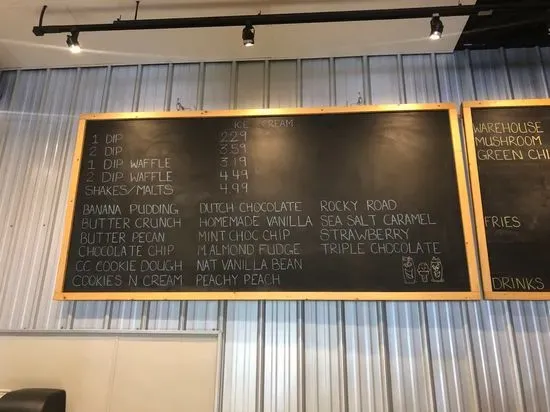 ICE CREAM
1 DIP 2.29
2 DIP 3.59
1 DIP WAFFLE 3.19
2 DIP WAFFLE 4.49
SHAKES/MALTS 4.99
BANANA PUDDING DUTCH CHOCOLATE ROCKY ROAD
BUTTER CRUNCH HOMEMADE VANILLA SEA SALT CARAMEL
BUTTER PECAN MINT CHOC CHIP STRAWBERRY
CHOCOLATE CHIP M.ALMOND FUDGE TRIPLE CHOCOLATE
CC COOKIE DOUGH NAT VANILLA BEAN
COOKIES N CREAM PEACHY PEACH
WAREHOUSE
MUSHROOM
GREEN CHI
FRIES
DRINKS